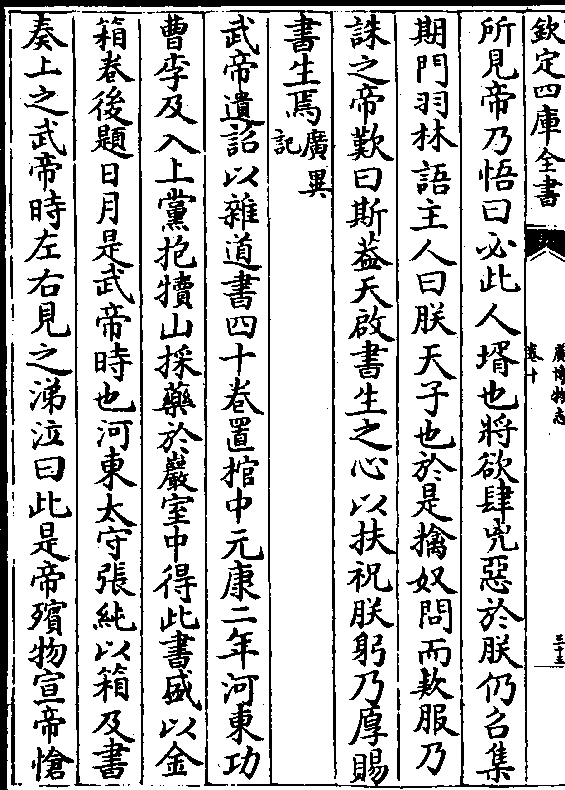 欽定四庫全書
廣博物志
卷十
三十五
所見帝乃悟曰必此人壻也將欲肆兇惡於朕仍召集
期門羽林語主人曰朕天子也於是擒奴問而款服乃
誅之帝歎曰斯葢天啟書生之心以扶祝朕躬乃厚賜
書生焉廣異記
武帝遺詔以雜道書四十卷置棺中元康二年河東功
曹李及入上黨抱犢山採藥於巖室中得此書盛以金
箱卷後題日月是武帝時也河東太守張純以箱及書
奏上之武帝時左右見之涕泣曰此是帝殯物宣帝愴